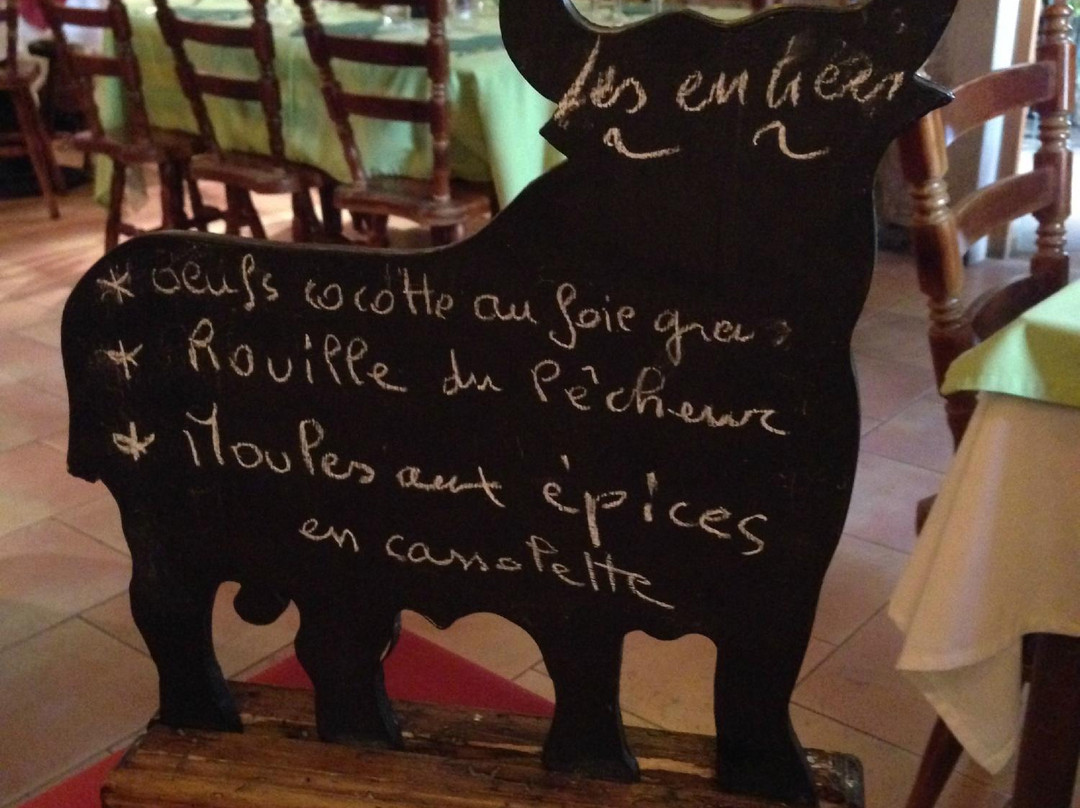 Les entrées
* Oeufs cocotte au foie gras
* Rouille du Pêcheur
* Moules aux épices
en cassolette